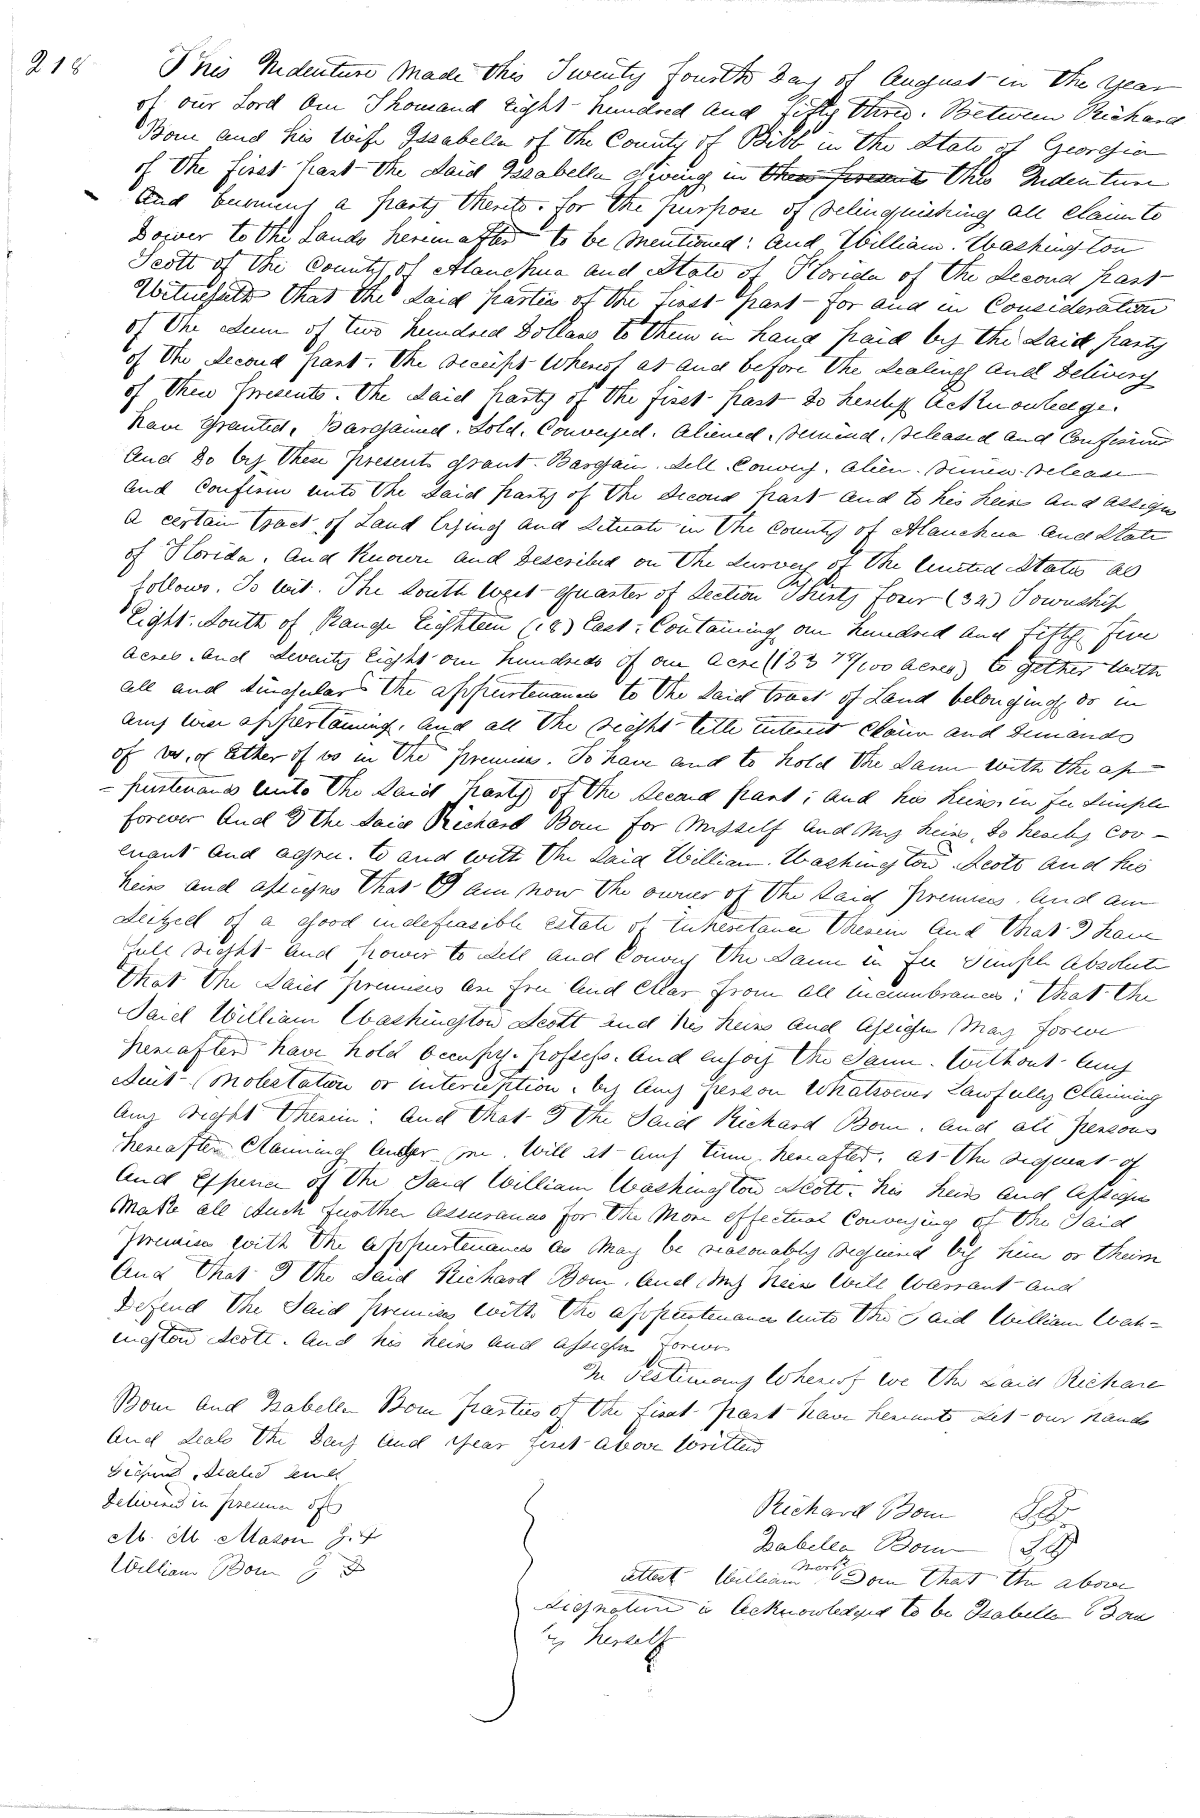 218
This Indenture Made this Twenty fourth Day of August in the year
of our Lord One Thousand Eight hundred and fifty three. Between Richard
Born and his wife Issabella of the County of Bibb in the State of Georgia
of the first part the Said Issabella Giving in these presents this Indenture
and becoming a party thereto. for the purpose of relinquishing all claim to
Dower to the Lands hereinafter to be Mentioned: and William. Washington
Scott of the County of Alanchua and State of Florida of the Second part
Witnesseth that the Said parties of the first part for and in Consideration
of the Sum of two hundred Dollars to them in hand paid by the Said party
of the Second part. the receipt Whereof at and before the Sealing and Delivery
of these Presents. the Said party of the first part Do hereby acknowledge.
have granted, Bargained. Sold. Conveyed. aliened. remised. released and Confirmed
and Do by these presents grant. Bargain. Sell. Convey. alien. remise. release
and Confirm unto the Said party of the Second part and to his heirs and assigns
a certain tract of Land lying and Situate in the County of Alanchua and State
of Florida. and Known and Described on the Survey of the United States as
follows. To wit. The South West quarter of Section Thirty four (34) Township
Eight. South of Range Eighteen (18) East: Containing one hundred and fifty five
acres. and Seventy Eight one hundreds of one acre (155 78/100 acres) to gether with
all and Singular the appurtenances to the Said tract of Land belonging or in
any wise appertaining. and all the right title interest claim and Demands
of us, or Ether of us in the premises. To have and to hold the Same with the ap=
=purtenances unto the Said Party of the Second part; and his heirs in fee Simple
forever And I the Said Richard Born for Myself and My heirs, Do hereby cov-
enant and agree. to and with the Said William. Washington Scott and his
heirs and assigns that I am now the owner of the Said premises. and am
Seized of a good indefeasible estate of Inheritance therein and that I have
full right and power to Sell and Convey the Same in fee Simple absolute
that the Said premises are free and Clear from all incumbrances; that the
Said William Washington Scott and his heirs and assigns May forever
hereafter have hold occupy. possess. and enjoy the Same. Without any
Suit. Molestation or interruption. by any person Whatsoever Lawfully Claiming
any right therein: and that I the Said Richard Born. and all persons
hereafter Claiming under me. Will at any time hereafter. at the request of
and Expence of the Said William Washington Scott. his heirs and assigns
Make all Such further assurances for the More effectual Conveying of the Said
Premises with the appurtenances as May be reasonably required by him or theirs
And that I the Said Richard Born. and My heirs Will Warrant and
Defend the Said premises with the appurtenances unto the Said William Wash=
ington Scott. and his heirs and assigns forever.
In Testimony Whereof we the Said Richard
Born and Isabella Born Parties of the first part have hereunto Set our hands
and Seals the Day and year first above Written
Signed, Sealed and
Delivered in presence of
M. M Mason J. P
William Born
Richard Born
Isabella Born
mark
attest William Born that the above
Signature is Acknowledged to be Isabella Born
by herself